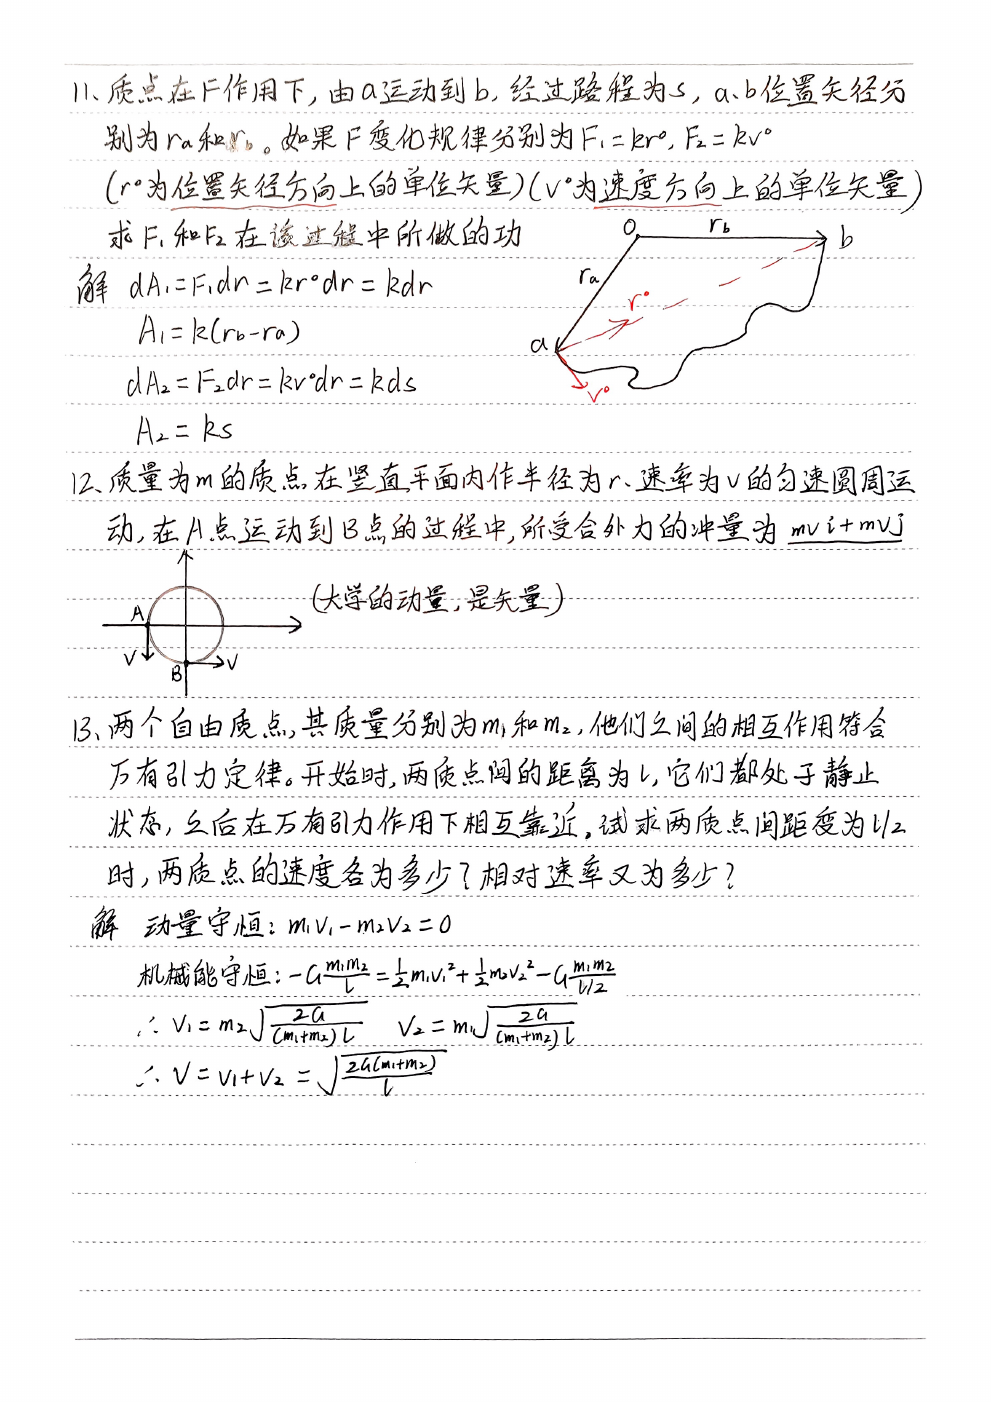 11、质点在F作用下,由a运动到b,经过路程为s,a、b位置矢径分
别为ra和rb。如果F变化规律分别为F₁=kr°,F₂=kv°
(r°为位置矢径方向上的单位矢量)(v°为速度方向上的单位矢量)
求F₁和F₂在该过程中所做的功
O rb b
ra r° a v°
解 dA₁=F₁dr=kr°dr=kdr
A₁=k(rb-ra)
dA₂=F₂dr=kv°dr=kds
A₂=ks
12、质量为m的质点在竖直平面内作半径为r、速率为v的匀速圆周运
动,在A点运动到B点的过程中,所受合外力的冲量为 mvi+mvj
(大学的动量,是矢量)
A V B V
13、两个自由质点,其质量分别为m₁和m₂,他们之间的相互作用符合
万有引力定律。开始时,两质点间的距离为l,它们都处于静止
状态,之后在万有引力作用下相互靠近。试求两质点间距变为l/2
时,两质点的速度各为多少?相对速率又为多少?
解 动量守恒: m₁v₁-m₂v₂=0
机械能守恒: -G m₁m₂/l = ½m₁v₁²+½m₂v₂²-G m₁m₂/(l/2)
∴ v₁=m₂√(2G/((m₁+m₂)l)) v₂=m₁√(2G/((m₁+m₂)l))
∴ v=v₁+v₂=√(2G(m₁+m₂)/l)